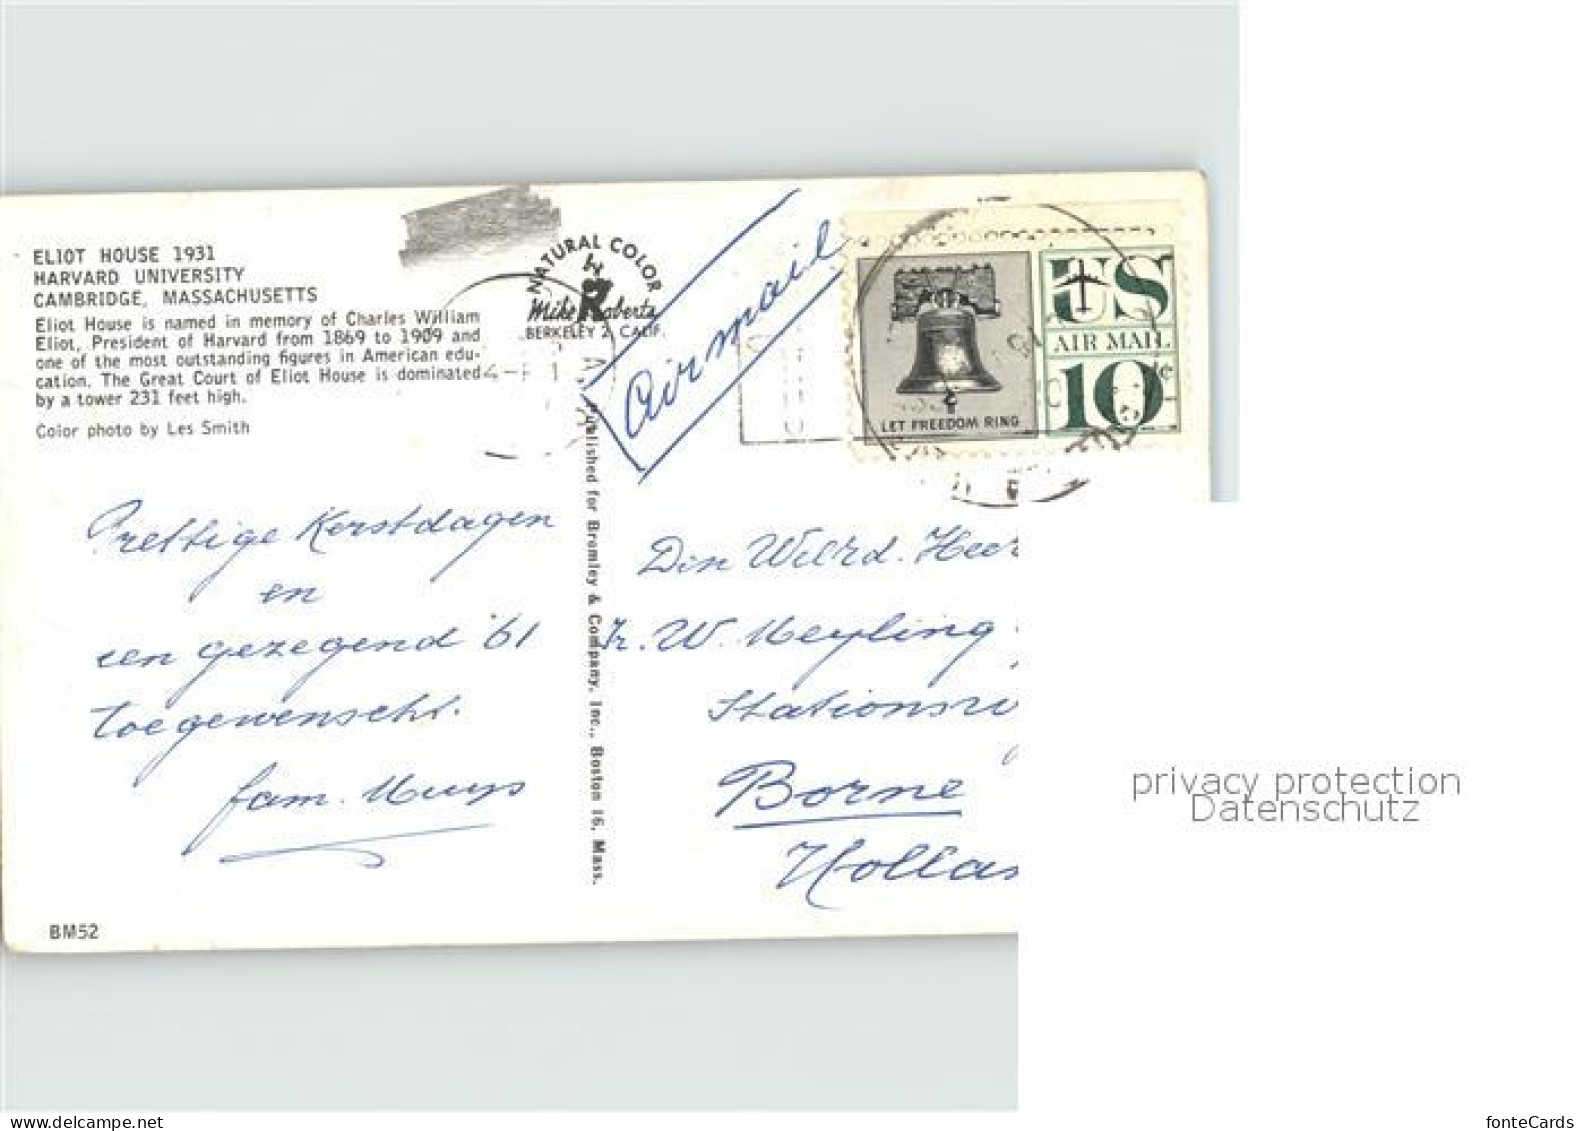 ELIOT HOUSE 1931
HARVARD UNIVERSITY
CAMBRIDGE, MASSACHUSETTS
Eliot House is named in memory of Charles William
Eliot, President of Harvard from 1869 to 1909 and
one of the most outstanding figures in American edu-
cation. The Great Court of Eliot House is dominated
by a tower 231 feet high.
Color photo by Les Smith
NATURAL COLOR
Mike Roberts
BERKELEY 2, CALIF.
Airmail
LET FREEDOM RING
US
AIR MAIL
10c
Prettige Kerstdagen
en
een gezegend '61
toegewenscht.
fam. Muys
Published for Bromley & Company, Inc., Boston 16, Mass.
Den Weled. Heer
W. Meyling
Stations
Borne
Hollan
BM52
privacy protection
Datenschutz
fonteCards